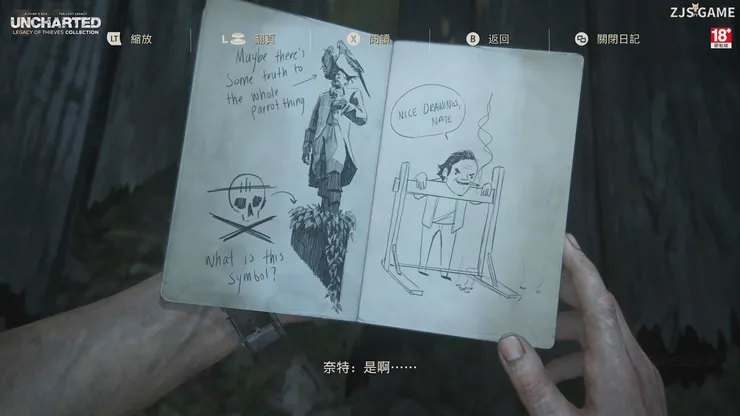 UNCHARTED
LEGACY OF THIEVES COLLECTION
LT 縮放
L 翻頁
X 閱讀
B 返回
關閉日記
ZJS.GAME
18+
Maybe there's
Some truth to
the whole
parrot thing
What is this
symbol?
NICE DRAWINGS,
NATE
奈特：是啊⋯⋯